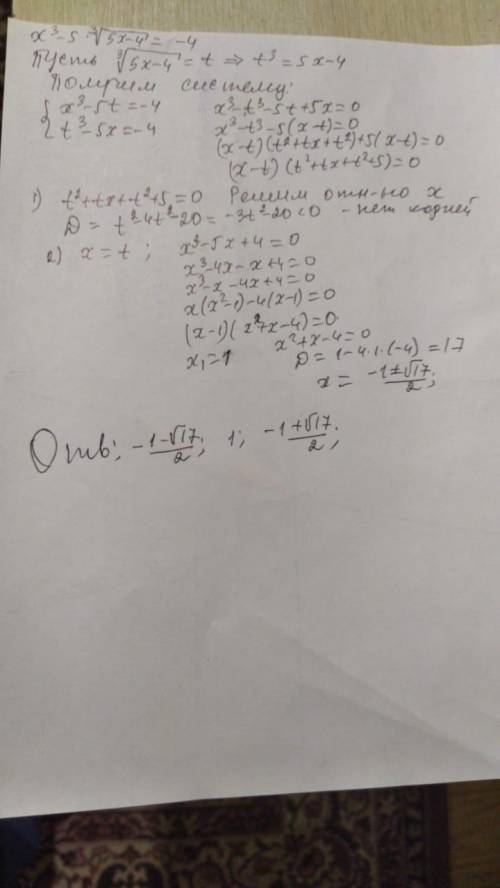 x³-5 ∛(5x-4) = -4
Пусть ∛(5x-4) = t ⇒ t³ = 5x-4
Получим систему:
{ x³-5t=-4
t³-5x=-4
x³-t³-5t+5x=0
x³-t³-5(x-t)=0
(x-t)(t²+tx+t²)+5(x-t)=0
(x-t)(t²+tx+t²+5)=0
1) t²+tx+t²+5=0 Решим отн-но x
D = t²-4t²-20 = -3t²-20<0 - нет корней
2) x=t; x³-5x+4=0
x³-4x-x+4=0
x³-x-4x+4=0
x(x²-1)-4(x-1)=0
(x-1)(x²+x-4)=0.
x₁=1
x²+x-4=0
D=1-4·1·(-4)=17
x= (-1±√17)/2;
Отв; (-1-√17)/2; 1; (-1+√17)/2;